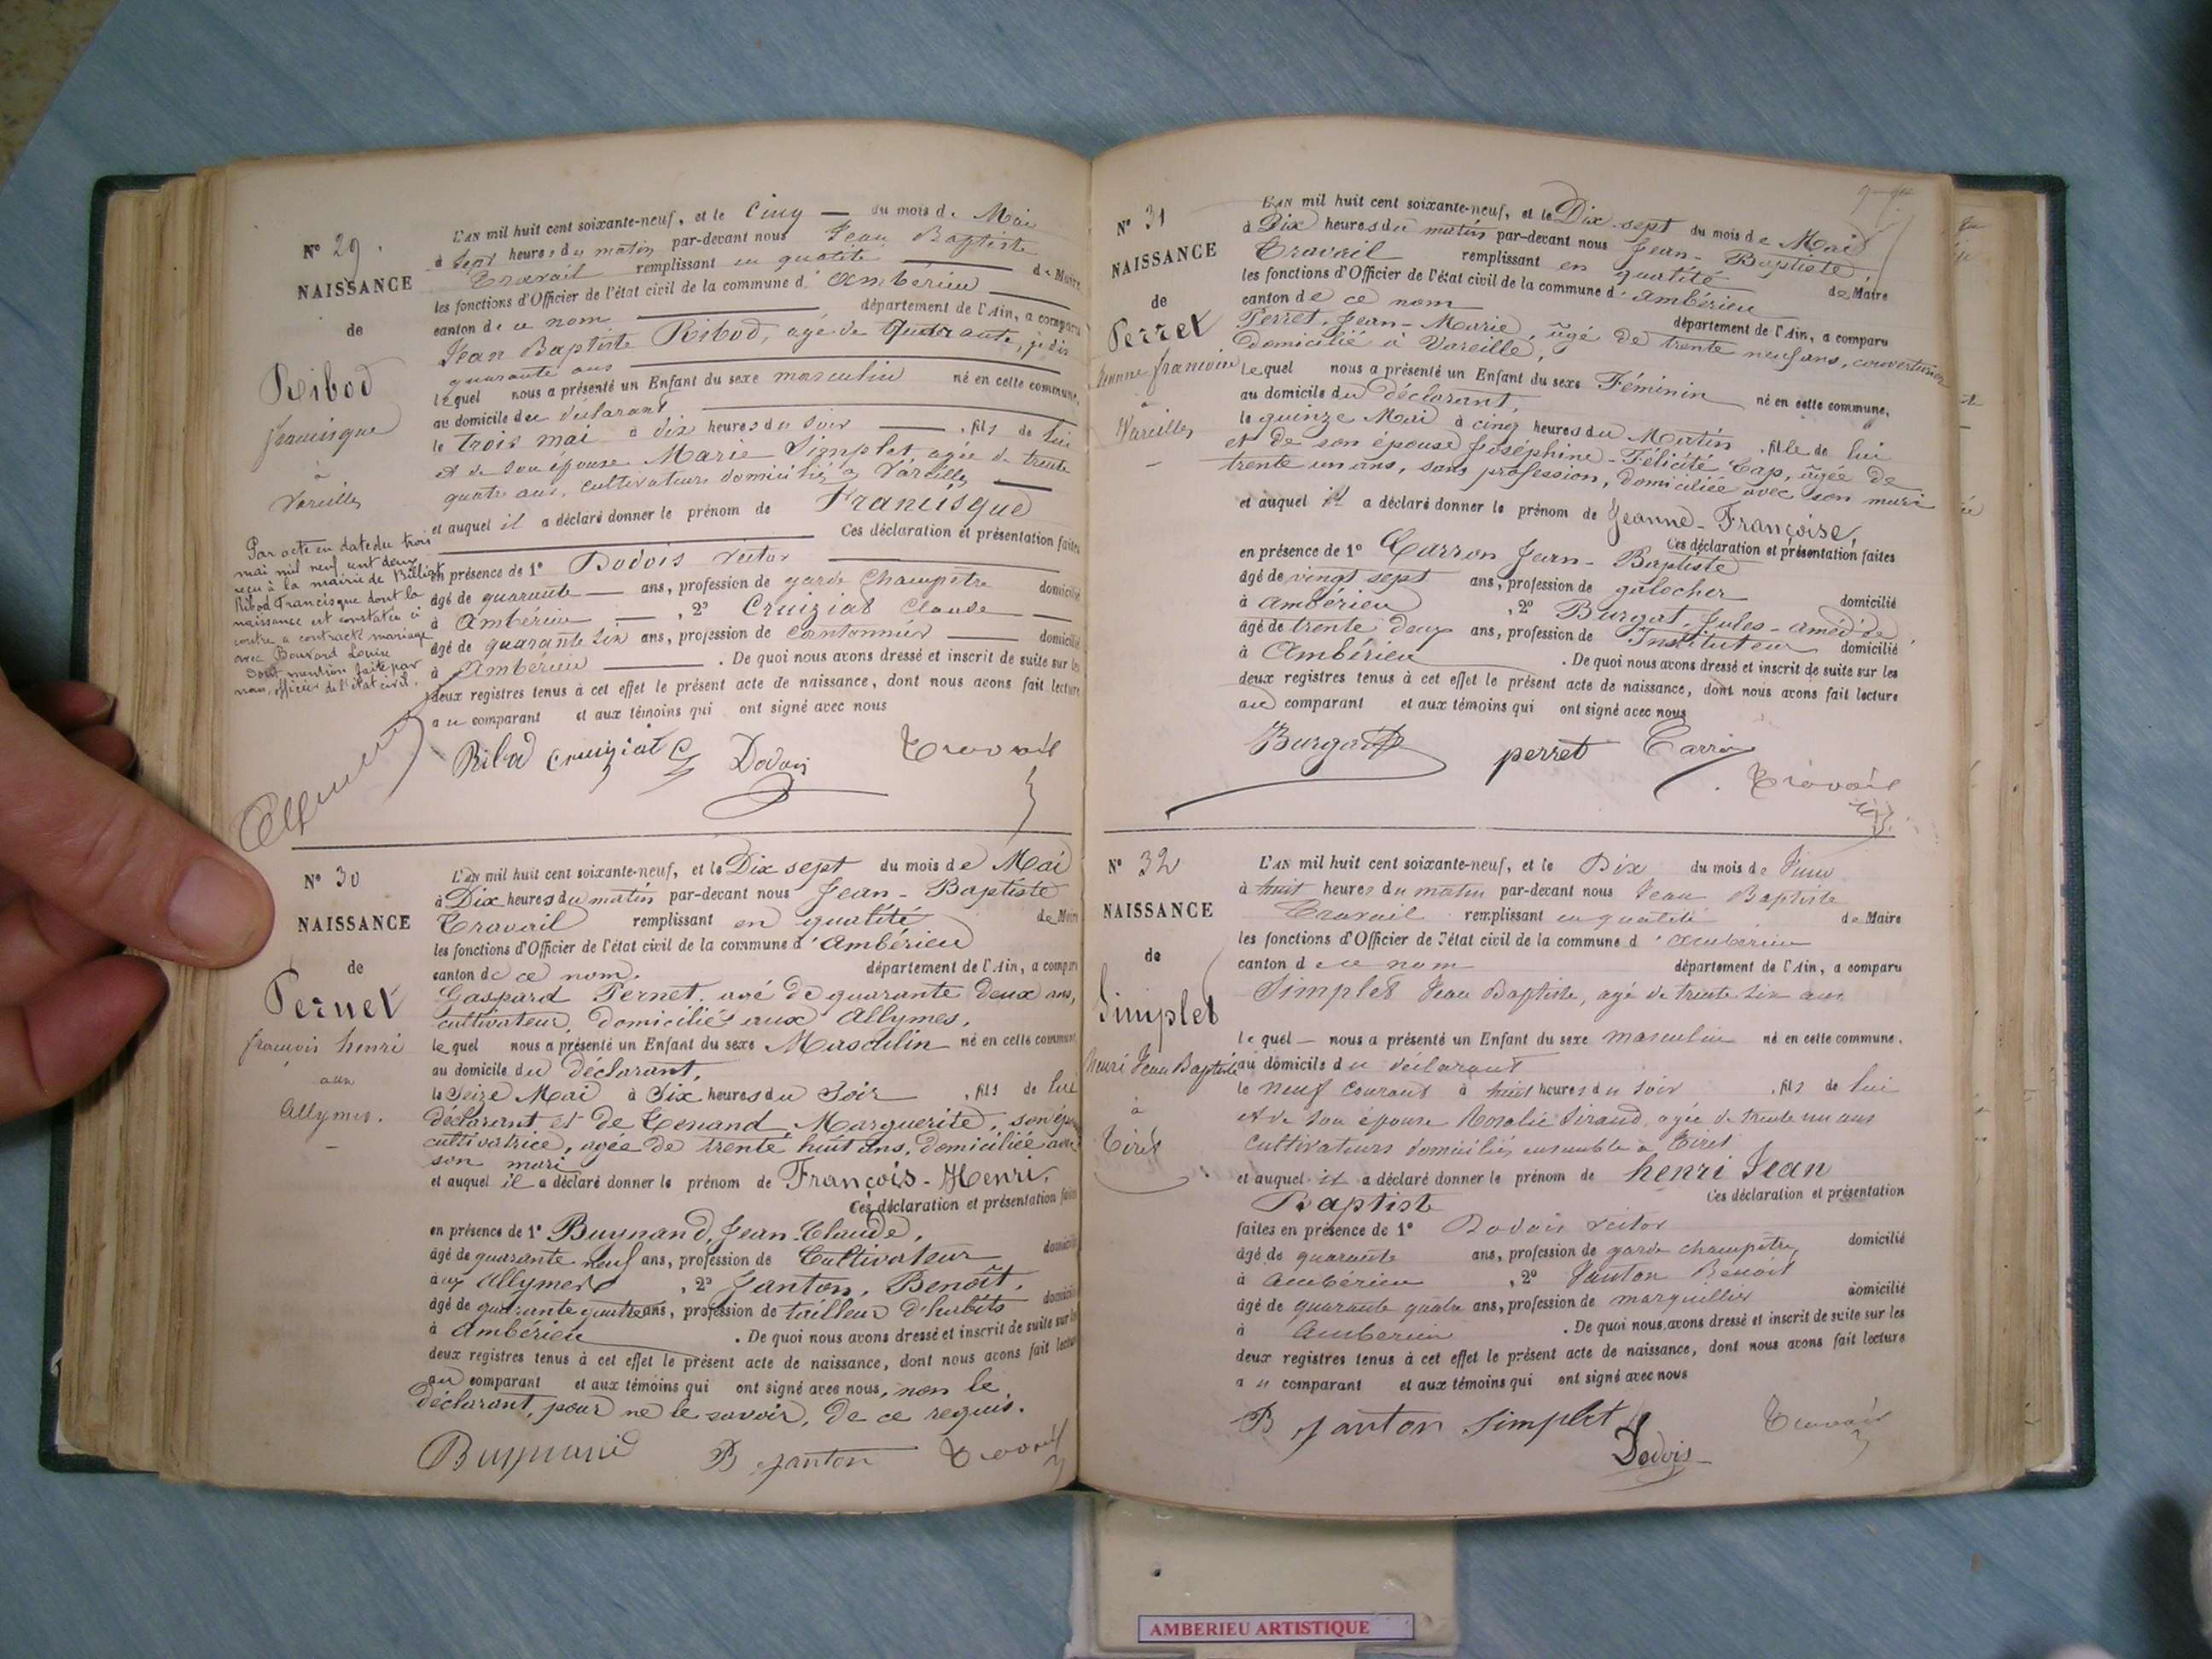 N° 29.
NAISSANCE
de
Ribod
francisque
à
Vareilles
Par acte en date du trois
mai mil neuf cent deux
reçu à la mairie de
Ribod Francisque dont la
naissance est constatée ci
contre a contracté mariage
avec Bouvard Louise
Dont mention faite par
nous officier de l'état civil.
L'AN mil huit cent soixante-neuf, et le Cinq — du mois de Mai
à Sept heures du matin par-devant nous Jean Baptiste
Travail remplissant en qualité de Maire
les fonctions d'Officier de l'état civil de la commune d'Ambérieu
canton de ce nom département de l'Ain, a comparu
Jean Baptiste Ribod, agé de quarante, je dis
quarante ans
lequel nous a présenté un Enfant du sexe masculin né en cette commune,
au domicile du déclarant
le trois mai à dix heures du soir , fils de lui
et de son épouse Marie Simplet agée de trente
quatre ans, cultivateurs domiciliés à Vareilles
et auquel il a déclaré donner le prénom de Francisque
Ces déclaration et présentation faites
en présence de 1° Dodois Victor
âgé de quarante — ans, profession de garde champêtre domicilié
à Ambérieu — , 2° Cruiziat Claude —
âgé de quarante six ans, profession de Cantonnier domicilié
à Ambérieu . De quoi nous avons dressé et inscrit de suite sur les
deux registres tenus à cet effet le présent acte de naissance, dont nous avons fait lecture
au comparant et aux témoins qui ont signé avec nous
Ribod Cruiziat C Dodois Travail
N° 30
NAISSANCE
de
Pernet
françois henri
aux
Allymes.
L'AN mil huit cent soixante-neuf, et le Dix sept du mois de Mai
à Dix heures du matin par-devant nous Jean-Baptiste
Travail remplissant en qualité de Maire
les fonctions d'Officier de l'état civil de la commune d'Ambérieu
canton de ce nom. département de l'Ain, a comparu
Gaspard Pernet, agé de quarante deux ans,
cultivateur, domicilié aux Allymes,
lequel nous a présenté un Enfant du sexe Masculin né en cette commune,
au domicile du déclarant,
le Seize Mai à Six heures du Soir , fils de lui
déclarant et de Tenand Marguerite, son épouse
cultivatrice, agée de trente huit ans, domiciliée avec
son mari
et auquel il a déclaré donner le prénom de François-Henri,
Ces déclaration et présentation faites
en présence de 1° Buynand, Jean-Claude,
âgé de quarante neuf ans, profession de Cultivateur domicilié
aux Allymes , 2° Janton, Benoît,
âgé de quarante quatre ans, profession de tailleur d'habits domicilié
à Ambérieu . De quoi nous avons dressé et inscrit de suite sur les
deux registres tenus à cet effet le présent acte de naissance, dont nous avons fait lecture
au comparant et aux témoins qui ont signé avec nous, non le
déclarant, pour ne le savoir, de ce requis.
Buynand B Janton Travail
N° 31
NAISSANCE
de
Perret
Jeanne françoise
à
Vareilles
L'AN mil huit cent soixante-neuf, et le Dix-sept du mois de Mai
à Dix heures du matin par-devant nous Jean-Baptiste,
Travail remplissant en qualité de Maire
les fonctions d'Officier de l'état civil de la commune d'Ambérieu
canton de ce nom département de l'Ain, a comparu
Perret, Jean-Marie, âgé de trente neuf ans, couverturier
domicilié à Vareille,
lequel nous a présenté un Enfant du sexe Féminin né en cette commune,
au domicile du déclarant,
le quinze Mai à cinq heures du Matin , fille de lui
et de son épouse Joséphine-Félicité Cap, âgée de
trente un ans, sans profession, domiciliée avec son mari
et auquel il a déclaré donner le prénom de Jeanne-Françoise,
Ces déclaration et présentation faites
en présence de 1° Carron Jean-Baptiste
âgé de vingt sept ans, profession de galocher domicilié
à Ambérieu , 2° Burgat, Jules-Amédée
âgé de trente deux ans, profession de Instituteur domicilié
à Ambérieu . De quoi nous avons dressé et inscrit de suite sur les
deux registres tenus à cet effet le présent acte de naissance, dont nous avons fait lecture
au comparant et aux témoins qui ont signé avec nous
Burgat perret Carron
Travail
N° 32
NAISSANCE
de
Simplet
henri Jean Baptiste
à
Tiret
L'AN mil huit cent soixante-neuf, et le Dix du mois de Juin
à huit heures du matin par-devant nous Jean Baptiste
Travail remplissant en qualité de Maire
les fonctions d'Officier de l'état civil de la commune d'Ambérieu
canton de ce nom département de l'Ain, a comparu
Simplet Jean Baptiste, agé de trente six ans
lequel — nous a présenté un Enfant du sexe masculin né en cette commune,
au domicile du déclarant
le neuf courant à huit heures du soir , fils de lui
et de son épouse Rosalie Sirand, agée de trente un ans
cultivateurs domiciliés ensemble à Tiret
et auquel il a déclaré donner le prénom de henri Jean
Baptiste Ces déclaration et présentation
faites en présence de 1° Dodois Victor
âgé de quarante ans, profession de garde champêtre, domicilié
à Ambérieu , 2° Janton Benoit
âgé de quarante quatre ans, profession de marguillier domicilié
à Amberieu . De quoi nous avons dressé et inscrit de suite sur les
deux registres tenus à cet effet le présent acte de naissance, dont nous avons fait lecture
au comparant et aux témoins qui ont signé avec nous
B Janton Simplet Travail
Dodois
AMBERIEU ARTISTIQUE